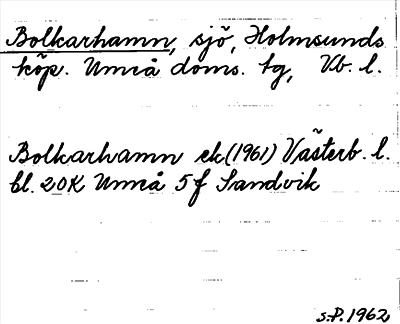 Bolkarhamn, sjö, Holmsunds
köp. Umeå doms. tg, Vb. l.
Bolkarhamn ek (1961) Västerb. l.
bl. 20K Umeå 5f Sandvik
S.P. 1962